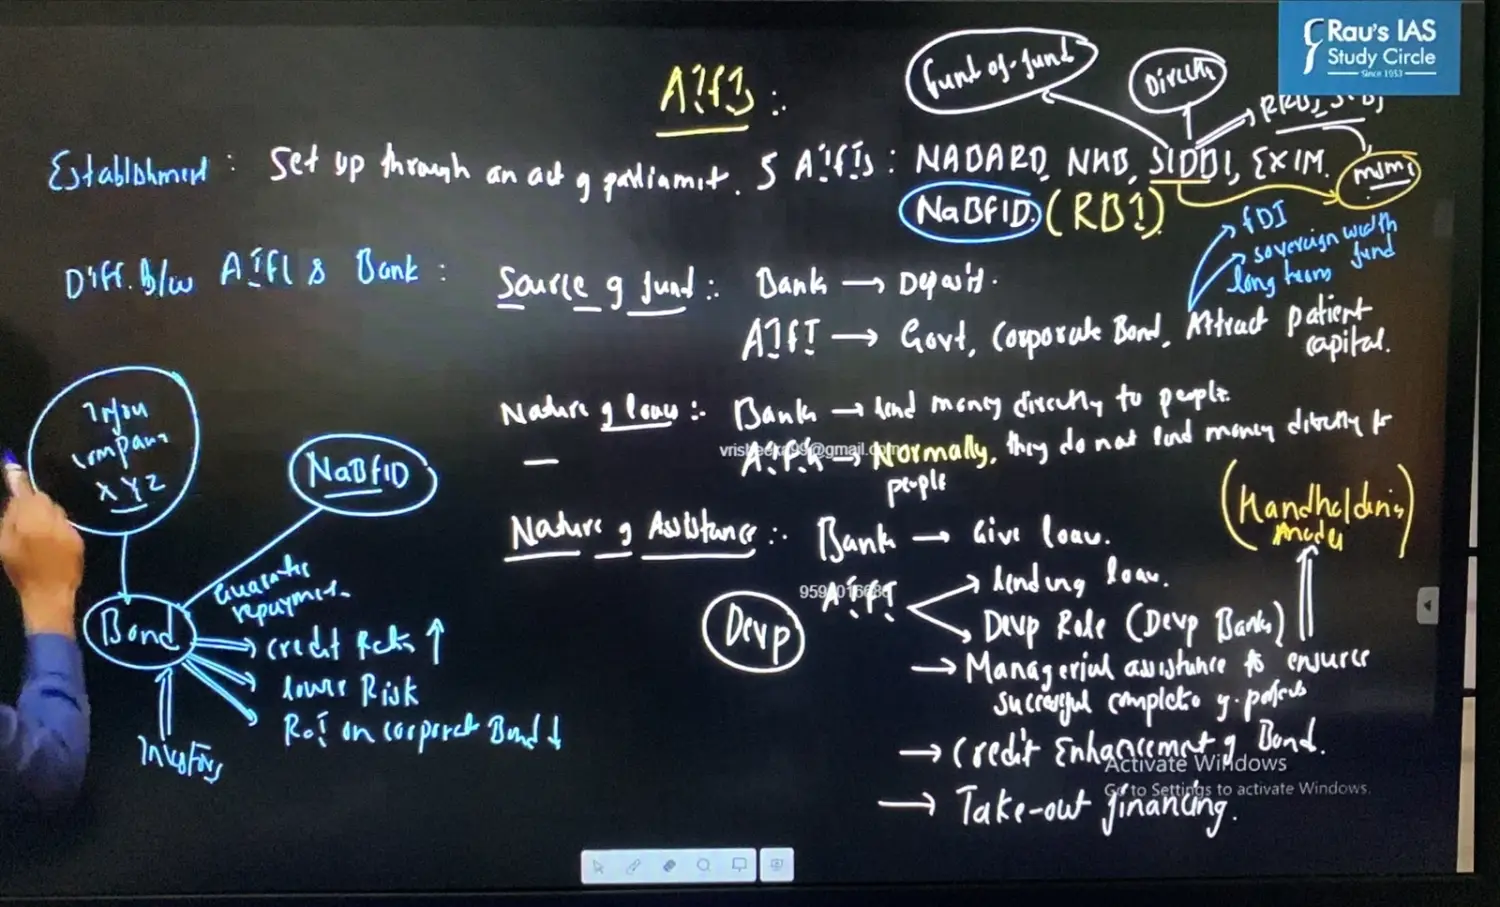 Rau's IAS
Study Circle
Since 1953
AIFIs :
Fund of-fund
Directly
Establishment : Set up through an act of parliament. 5 AIFIs : NABARD, NHB, SIDBI, EXIM.
MSME
NaBFID. (RBI)
FDI
sovereign wealth fund
long term
Diff. b/w AIFI & Bank : Source of fund : Bank → Deposit.
AIFI → Govt, Corporate Bond, Attract patient capital.
Nature of loan :- Bank → lend money directly to people.
vrisheeka99@gmail.com
→ Normally, they do not lend money directly to people
Infra company XYZ
NaBFID
(Handholding
Nature of Assistance :- Bank → Give loan.
9599016686
AIFI → lending loan.
Devp Role (Devp Banks)
Devp
→ Managerial assistance to ensure successful completion of projects
→ Credit Enhancement of Bond.
→ Take-out financing.
Guarantee repayment.
Bond
Credit Rating ↑
lower Risk
RoI on corporate Bond ↓
Investors
Activate Windows
Go to Settings to activate Windows.